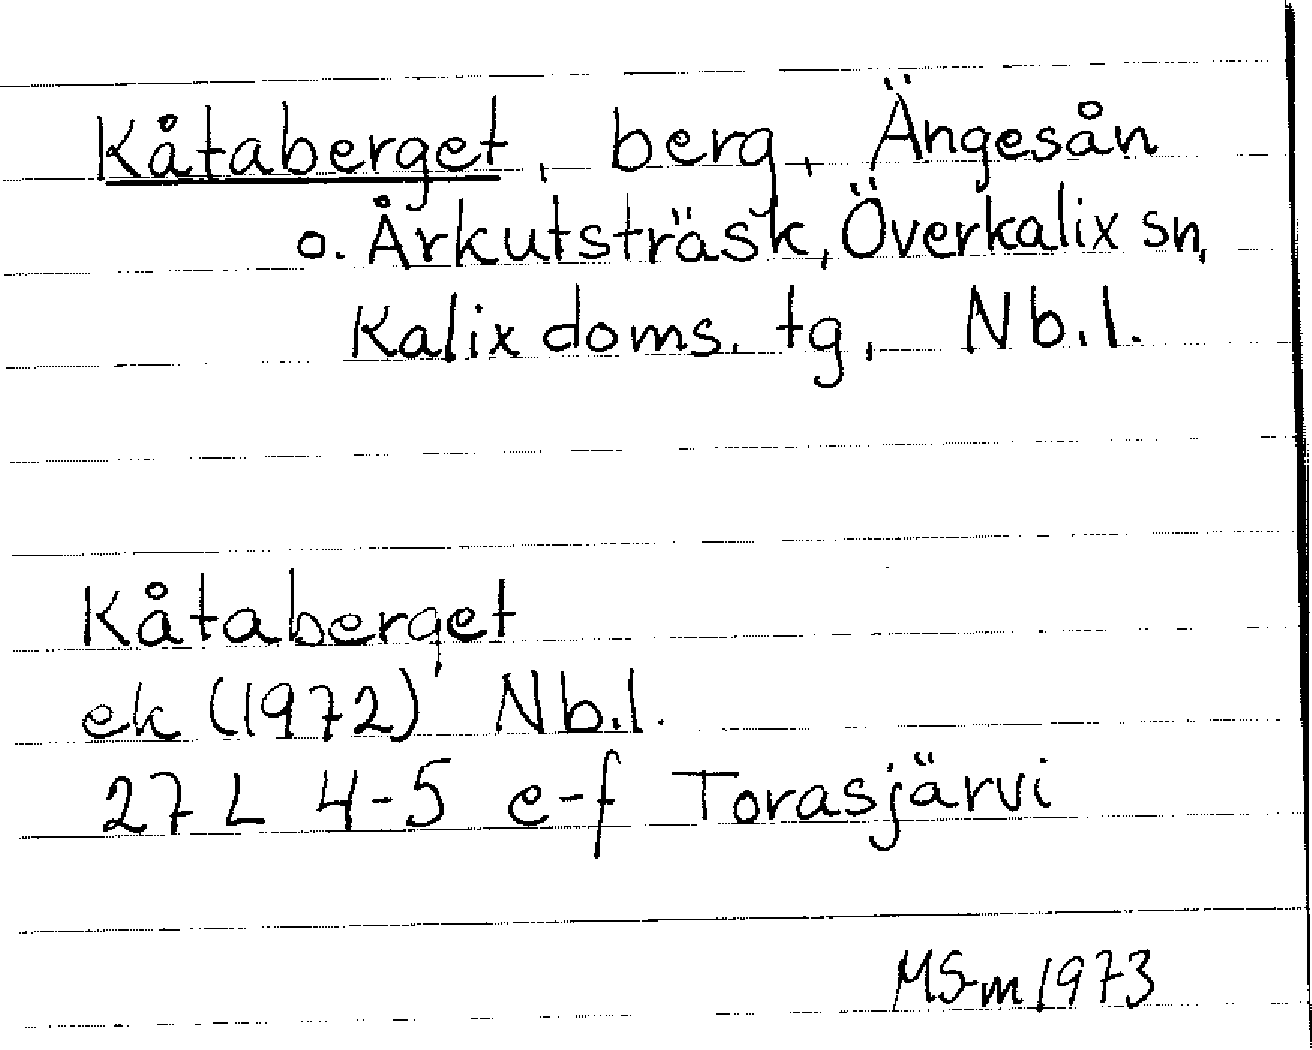 Kåtaberget, berg, Ängesån
o. Årkutsträsk, Överkalix sn,
Kalix doms. tg, Nb.l.
Kåtaberget
ek (1972) Nb.l.
27 L 4-5 e-f Torasjärvi
MSm 1973